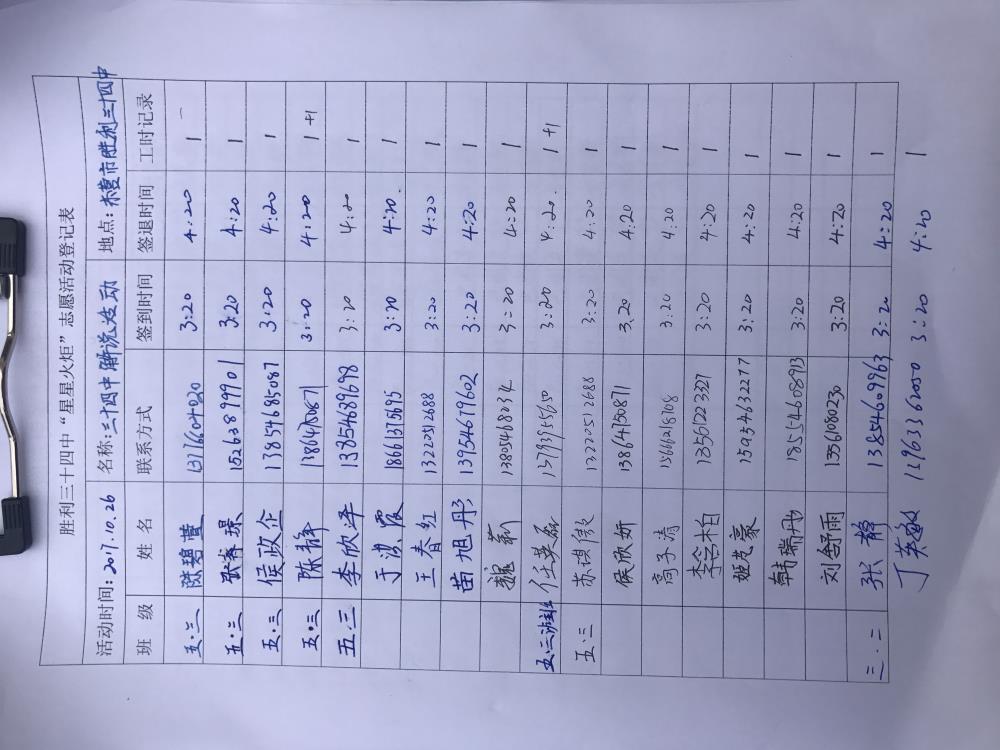 胜利三十四中“星星火炬”志愿活动登记表
活动时间：2017.10.26 名称：三十四中解说活动 地点：东营市胜利三十四中
班 级 姓 名 联系方式 签到时间 签退时间 工时记录
五.三 碧萱 13176604820 3:20 4:20 1
五.三 15263899901 3:20 4:20 1
五.三 侯政企 13854685087 3:20 4:20 1
五.三 陈静 3:20 4:20 1 +1
五.三 李欣泽 13854689698 3:20 4:20 1
于波霞 18661375695 3:20 4:20 1
王春红 13220512688 3:20 4:20 1
苗旭彤 13954677602 3:20 4:20 1
魏莉 13805468034 3:20 4:20 1
五.三班 任英磊 3:20 4:20 1 +1
五.三 苏琪傲 13220512688 3:20 4:20 1
侯欣妍 13864750871 3:20 4:20 1
高子涛 15666218708 3:20 4:20 1
李柏 13561022327 3:20 4:20 1
姬茂豪 15954632277 3:20 4:20 1
韩瑞丹 18554608973 3:20 4:20 1
刘舒雨 13361080230 3:20 4:20 1
三.二 张静 13854609963 3:20 4:20 1
丁英敏 3:20 4:20 1